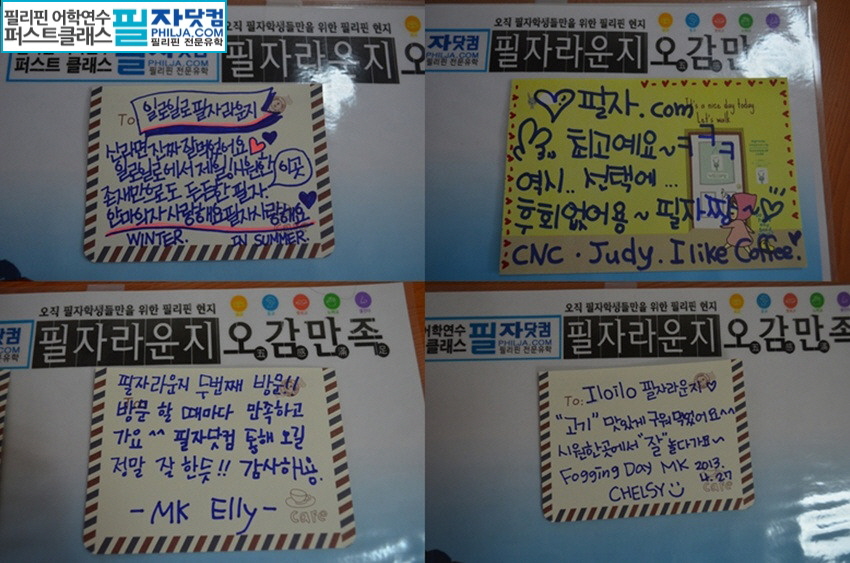 필리핀 어학연수
퍼스트클래스
필자닷컴
PHILJA.COM
필리핀 전문유학
오직 필자학생들만을 위한 필리핀 현지
필자라운지 오
To 일로일로필자라운지
신라면 진짜 잘먹었어요
일로일로에서 제일 시원한 이곳
존재만으로도 든든한 필자
안마의자 사랑해요 필자사랑해요
WINTER. IN SUMMER.
오직 필자학생들만을 위한 필리핀 현지
자닷컴
PHILJA.COM
필리핀 전문유학
필자라운지 오감만
It's a nice day today
Let's walk
필자.com
최고예요~ㅋㅋㅋ
역시.. 선택에...
후회없어용~ 필자짱~
CNC. Judy. I like Coffee.
오직 필자학생들만을 위한 필리핀 현지
닷컴
.COM
문유학
필자라운지 오감만족
필자라운지 두번째 방문!!
방문 할 때마다 만족하고
가요^^ 필자닷컴 통해 오길
정말 잘 한듯!! 감사해용.
- MK Elly -
cafe
오직 필자학생들만을 위한 필리핀 현지
어학연수
클래스
필자닷컴
PHILJA.COM
필리핀 전문유학
필자라운지 오감만족
To: Iloilo 필자라운지
"고기" 맛있게 구워먹었어요^^
시원한곳에서 "잘" 놀다가요~
Fogging Day MK 2013.
4.27
CHELSY
cafe